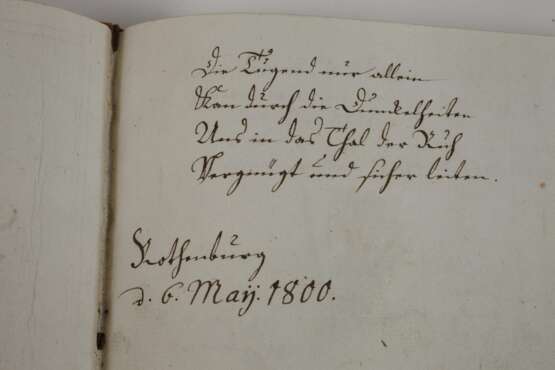 Die Tugend nur allein
Kan durch die Dunckelheiten
Uns in das Thal der Ruh
Vergnügt und sicher leiten.
Rothenburg
d. 6. Maÿ. 1800.